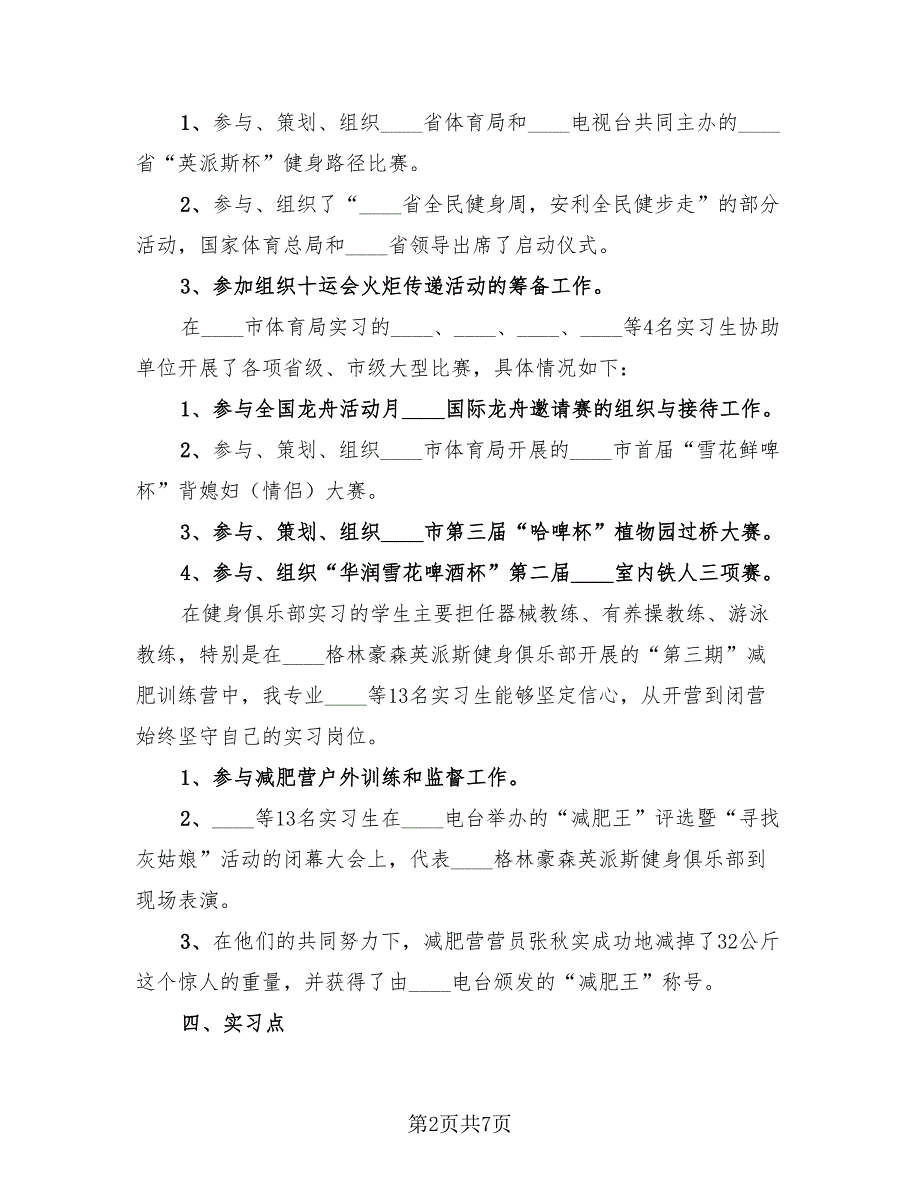 1、参与、策划、组织____省体育局和____电视台共同主办的____
省“英派斯杯”健身路径比赛。
2、参与、组织了“____省全民健身周，安利全民健步走”的部分
活动，国家体育总局和____省领导出席了启动仪式。
3、参加组织十运会火炬传递活动的筹备工作。
在____市体育局实习的____、____、____、____等4名实习生协助
单位开展了各项省级、市级大型比赛，具体情况如下：
1、参与全国龙舟活动月____国际龙舟邀请赛的组织与接待工作。
2、参与、策划、组织____市体育局开展的____市首届“雪花鲜啤
杯”背媳妇（情侣）大赛。
3、参与、策划、组织____市第三届“哈啤杯”植物园过桥大赛。
4、参与、组织“华润雪花啤酒杯”第二届____室内铁人三项赛。
在健身俱乐部实习的学生主要担任器械教练、有养操教练、游泳
教练，特别是在____格林豪森英派斯健身俱乐部开展的“第三期”减
肥训练营中，我专业____等13名实习生能够坚定信心，从开营到闭营
始终坚守自己的实习岗位。
1、参与减肥营户外训练和监督工作。
2、____等13名实习生在____电台举办的“减肥王”评选暨“寻找
灰姑娘”活动的闭幕大会上，代表____格林豪森英派斯健身俱乐部到
现场表演。
3、在他们的共同努力下，减肥营营员张秋实成功地减掉了32公斤
这个惊人的重量，并获得了由____电台颁发的“减肥王”称号。
四、实习点
第2页共7页